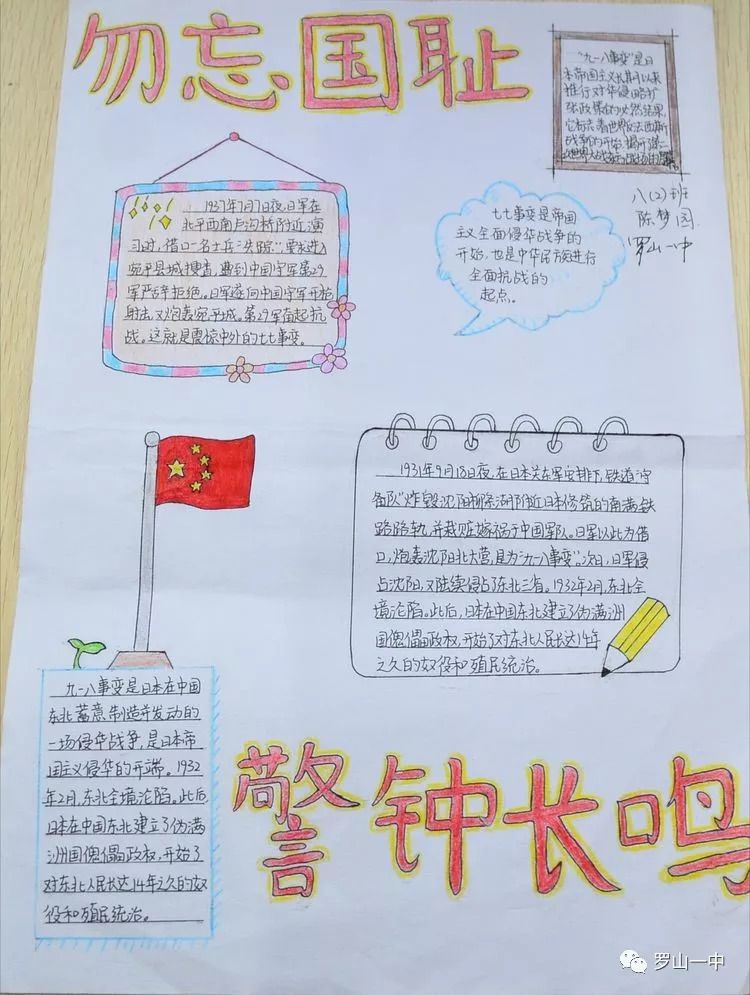 勿忘国耻
"九一八事变"是日
本帝国主义长期以来
推行对华侵略扩
张政策的必然结果,
它标志着世界反法西斯
战争的开始,揭开了第二
次世界大战东方战场的序幕。
八(2)班
陈梦圆
罗山一中
1937年7月7日夜,日军在
北平西南卢沟桥附近演
习时,借口一名士兵"失踪",要求进入
宛平县城搜查,遭到中国守军第29
军严辞拒绝。日军遂向中国守军开枪
射击,又炮轰宛平城。第29军奋起抗
战。这就是震惊中外的七七事变。
七七事变是帝国
主义全面侵华战争的
开始,也是中华民族进行
全面抗战的
起点。
1931年9月18日夜,在日本关东军安排下,铁道"守
备队"炸毁沈阳柳条湖附近日本修筑的南满铁
路路轨,并栽赃嫁祸于中国军队。日军以此为借
口,炮轰沈阳北大营,是为"九一八事变"。次日,日军侵
占沈阳,又陆续侵占了东北三省。1932年2月,东北全
境沦陷。此后,日本在中国东北建立了伪满洲
国傀儡政权,开始了对东北人民长达14年
之久的奴役和殖民统治。
九一八事变是日本在中国
东北蓄意制造并发动的
一场侵华战争,是日本帝
国主义侵华的开端。1932
年2月,东北全境沦陷。此后,
日本在中国东北建立了伪满
洲国傀儡政权,开始了
对东北人民长达14年之久的奴
役和殖民统治。
警钟长鸣
罗山一中